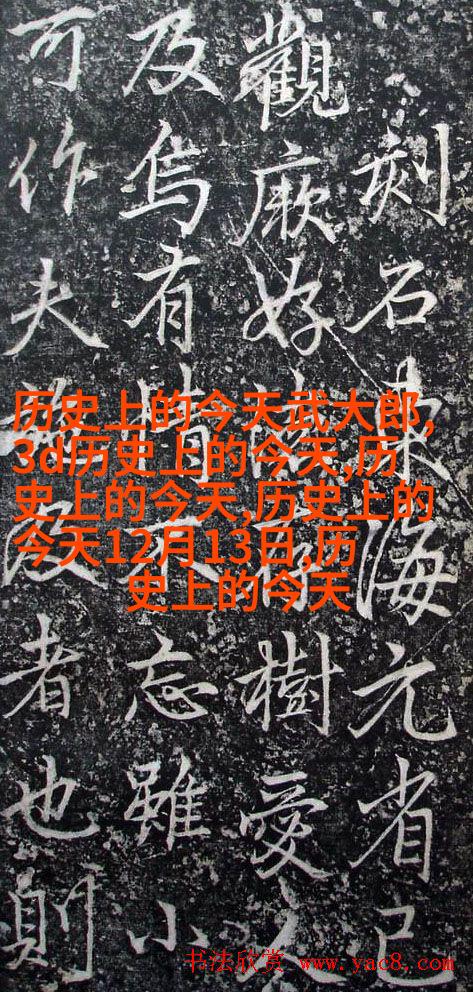 刻石東海元省已
觀厥好樹愛
及烏有情忘雖小
可作夫者也則
历史上的今天武大郎,
3d历史上的今天,历
史上的今天,历史上的
今天12月13日,历
史上的今天
书法欣赏 www.yac8.com